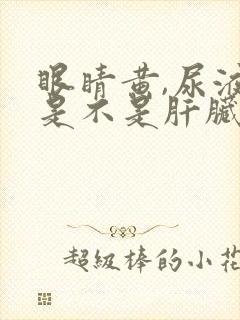 眼睛黄,尿液
是不是肝臟
超級棒的小花